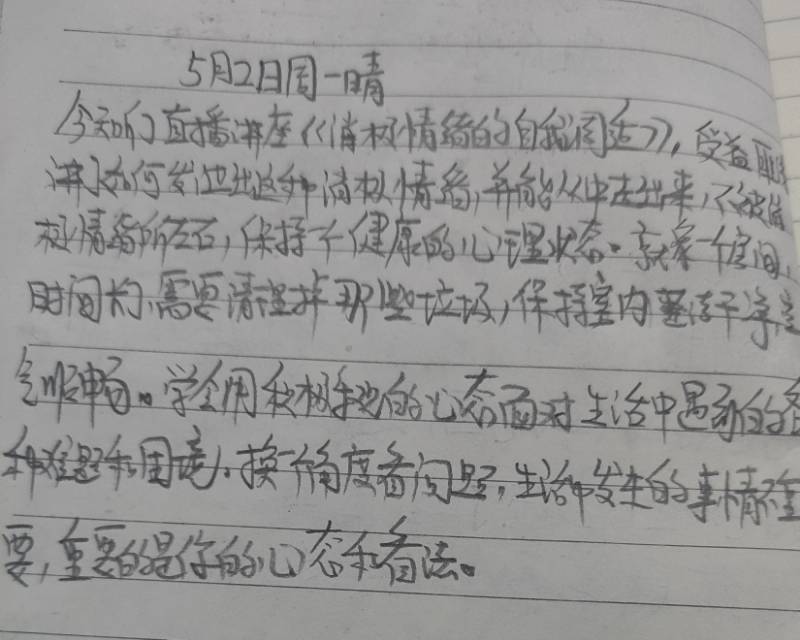 5月2日周一晴
今天听了直播讲座《消极情绪的自我调适》,受益
讲了如何发泄出这种消极情绪,并能从中走出来,不被消
极情绪所左右,保持一个健康的心理状态。就象一个房间,
时间长了需要清理掉那些垃圾,保持室内整洁干净
气顺畅。学会用积极乐观的心态面对生活中遇到的各
种难题和困境,换个角度看问题,生活中发生的事情不重
要,重要的是你的心态和看法。